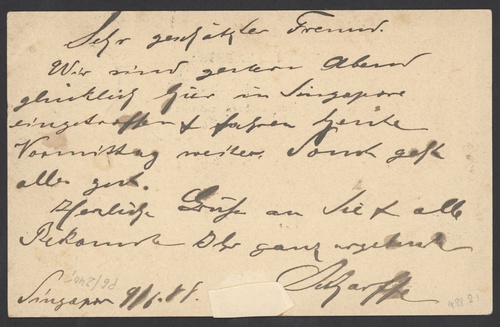 Sehr geschätzter Freund.
Wir sind gestern Abend
glücklich hier in Singapore
eingetroffen & fahren heute
Vormittag weiter. Sonst geht
alles gut.
Herzliche Grüße an Sie & alle
Bekannte Ihr ganz ergebenster
Scharffe
Singapor 9/6.88.